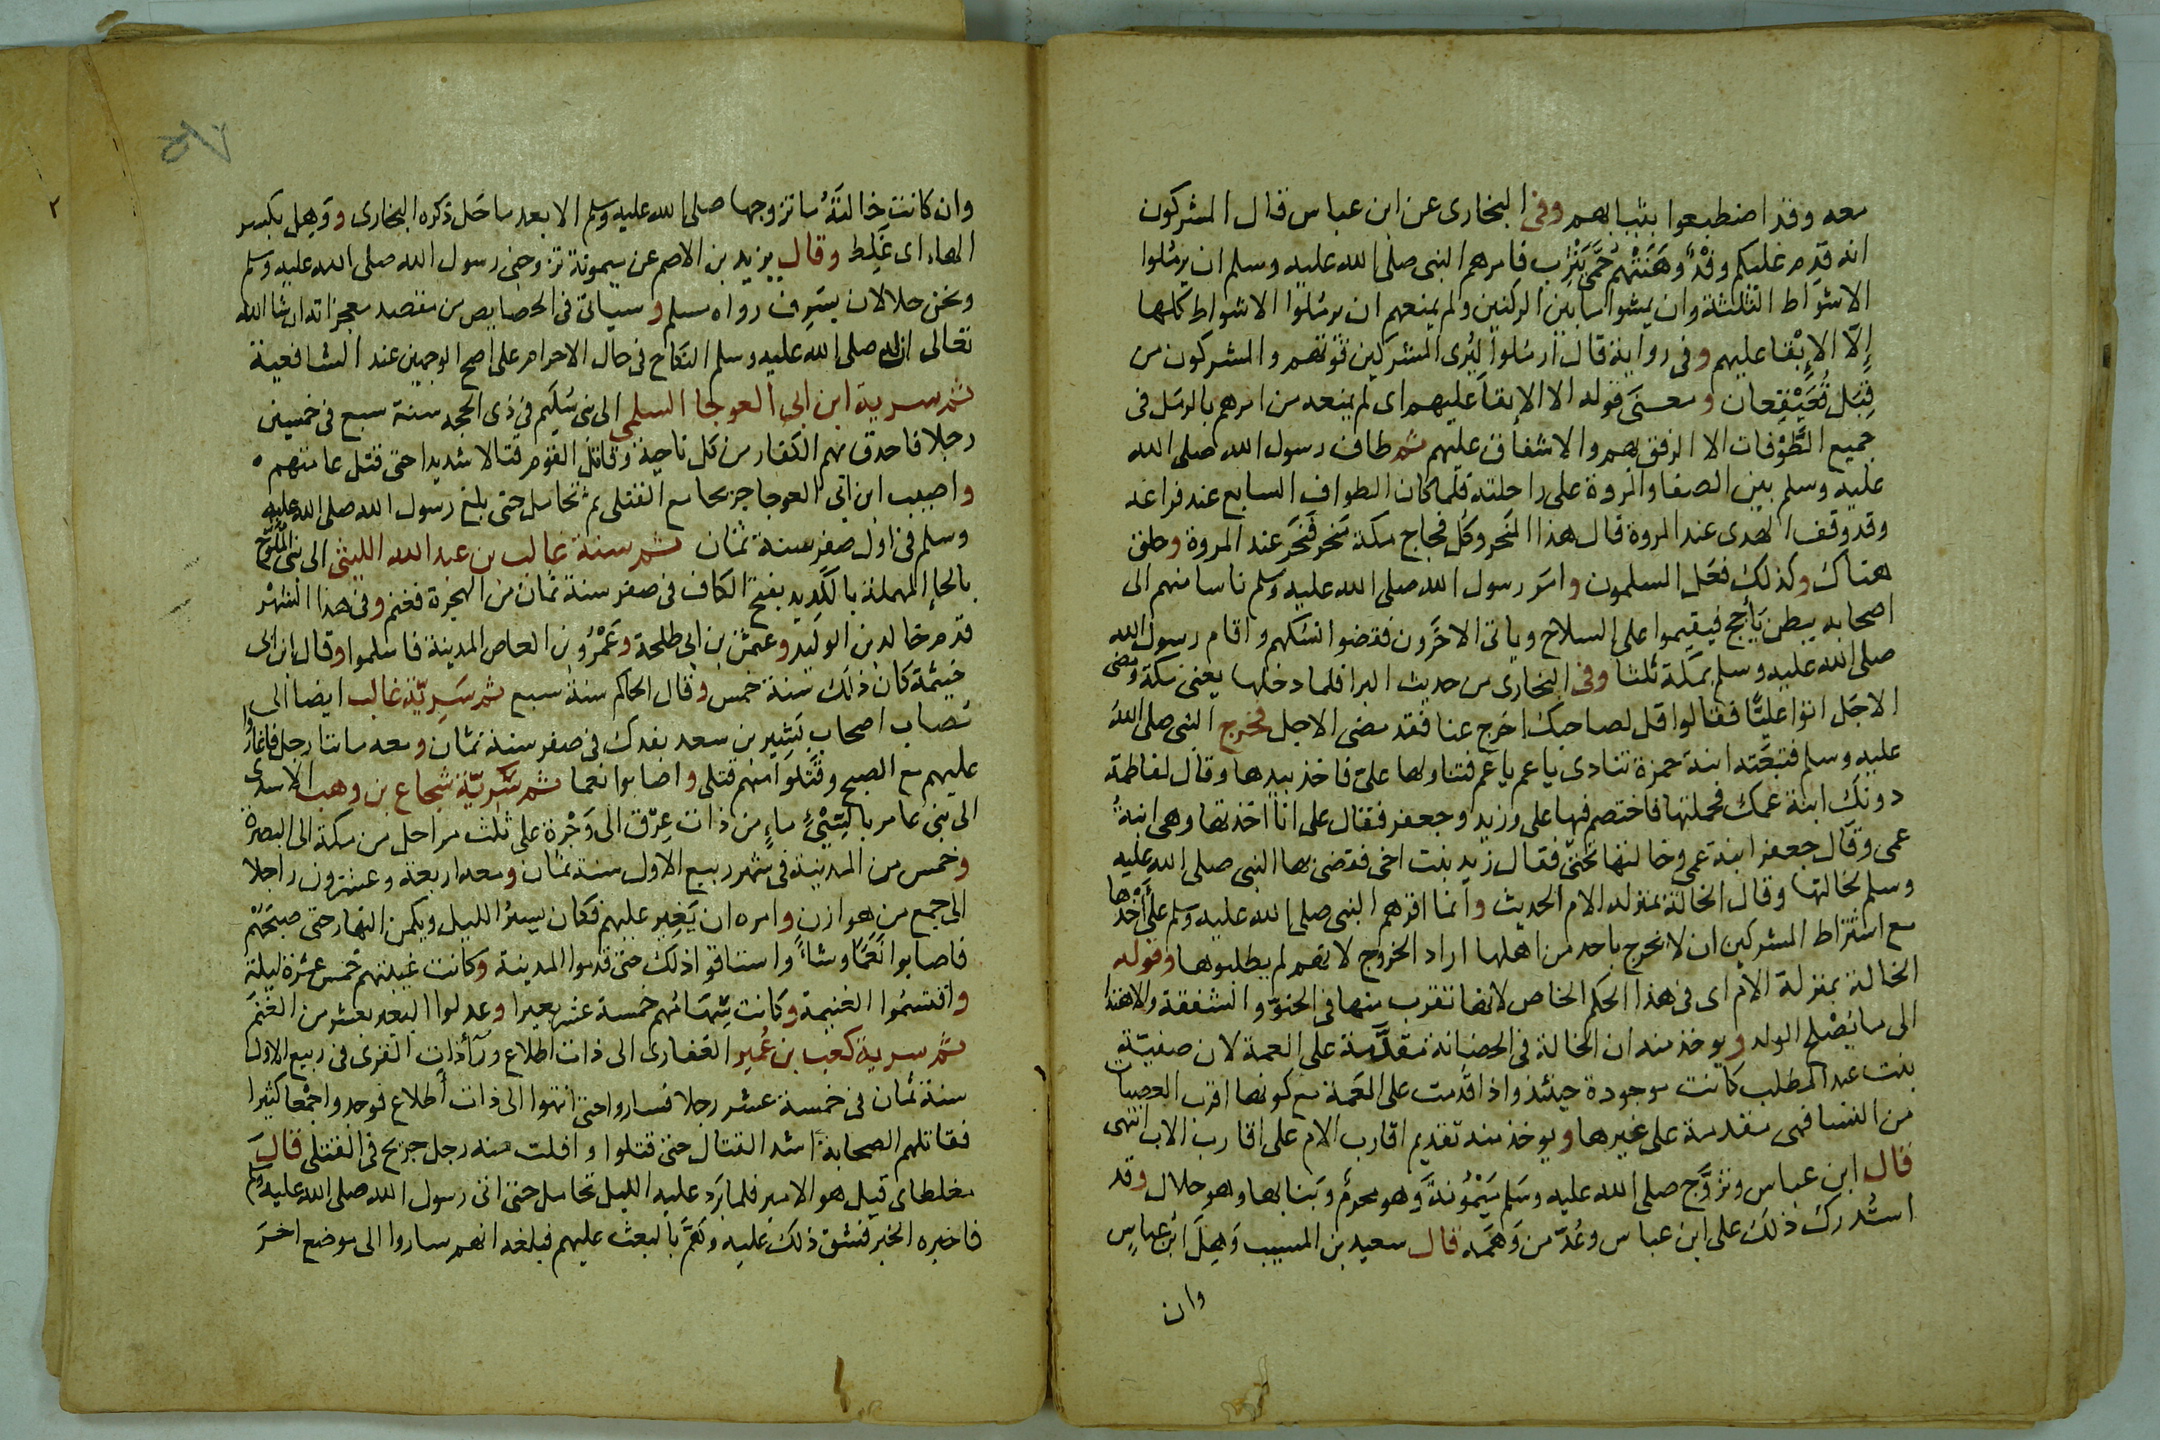 معه وقد اضطبعوا بثيابهم وفى البخارى عن ابن عباس قال المشركون
انه قدم عليكم وفد وهنتهم حمى يثرب فامرهم النبى صلى الله عليه وسلم ان يرملوا
الاشواط الثلثة وان يمشوا ما بين الركنين ولم يمنعهم ان يرملوا الاشواط كلها
إلا الإبقا عليهم وفى رواية قال ارملوا ليرى المشركين قوتهم والمشركون من
قبل قعيقعان ومعنى قوله الا الإبقا عليهم اى لم يمنعه من امرهم بالرمل فى
جميع الطوفات الا الرفق بهم والاشفاق عليهم ثم طاف رسول الله صلى الله
عليه وسلم بين الصفا والمروة على راحلته فلما كان الطواف السابع عند فراغه
وقد وقف الهدى عند المروة قال هذا المنحر وكل فجاج مكة منحر فنحر عند المروة وحلق
هناك وكذلك فعل المسلمون وامر رسول الله صلى الله عليه وسلم ناسا منهم الى
اصحابه ببطن يأجج فيقيموا على السلاح وياتى الاخرون فقضوا نسكهم واقام رسول الله
صلى الله عليه وسلم بمكة ثلثا وفى البخارى من حديث البرا فلما دخلها يعنى مكة ومضى
الاجل اتوا عليًّا فقالوا قل لصاحبك اخرج عنا فقد مضى الاجل فخرج النبى صلى الله
عليه وسلم فتبعته ابنة حمزة تنادى يا عم يا عم فتناولها على فاخذ بيدها وقال لفاطمة
دونك ابنة عمك فحملتها فاختصم فيها على وزيد وجعفر فقال على انا اخذتها وهى ابنة
عمى وقال جعفر ابنة عمى وخالتها تحتى فقال زيد بنت اخى فقضى بها النبى صلى الله عليه
وسلم لخالتها وقال الخالة بمنزلة الام الحديث وانما اقرهم النبى صلى الله عليه وسلم على أخذها
مع اشتراط المشركين ان لا يخرج باحد من اهلها اراد الخروج لانهم لم يطلبوها وقوله
الخالة بمنزلة الام اى فى هذا الحكم الخاص لانها تقرب منها فى الحنو والشفقة والاهتدا
الى ما يصلح الولد ويوخذ منه ان الخالة فى الحضانة مقدَّمة على العمة لان صفية
بنت عبد المطلب كانت موجودة حينئذ واذا قدمت على العمة مع كونها اقرب العصبات
من النسا فهى مقدمة على غيرها ويوخذ منه تقديم اقارب الام على اقارب الاب انتهى
قال ابن عباس وتزوج صلى الله عليه وسلم ميمونة وهو محرم وبنا بها وهو حلال وقد
استدرك ذلك على ابن عباس وعد من وهمه قال سعيد بن المسيب وهل ابن عباس
وان
٧٥
وان كانت خالته ما تزوجها صلى الله عليه وسلم الا بعد ما حل ذكره البخارى ووهل بكسر
الهاء اى غلط وقال يزيد بن الاصم عن ميمونة تزوجنى رسول الله صلى الله عليه وسلم
ونحن حلالان بسرف رواه مسلم وسياتى فى الخصايص من مقصد معجزاته ان شا الله
تعالى ان له صلى الله عليه وسلم النكاح فى حال الاحرام على اصح الوجهين عند الشافعية
ثم سرية ابن ابى العوجا السلمى الى بنى سليم فى ذى الحجه سنة سبع فى خمسين
رجلا فاحدق بهم الكفار من كل ناحية وقاتل القوم قتالا شديدا حتى قتل عامتهم
واصيب ابن ابى العوجا جريحا مع القتلى ثم تحامل حتى بلغ رسول الله صلى الله عليه
وسلم فى اول صفر سنة ثمان ثم سرية غالب بن عبد الله الليثى الى بنى الملوح
بالحاء المهملة بالكديد بفتح الكاف فى صفر سنة ثمان من الهجرة فغنم وفى هذا الشهر
قدم خالد بن الوليد وعثمن بن ابى طلحة وعمرو بن العاص المدينة فاسلموا وقال ابن ابى
خيثمة كان ذلك سنة خمس وقال الحاكم سنة سبع ثم سرية غالب ايضا الى
مصاب اصحاب بشير بن سعد بفدك فى صفر سنة ثمان ومعه مائتا رجل فاغاروا
عليهم مع الصبح وقتلوا منهم قتلى واصابوا نعما ثم سرية شجاع بن وهب الاسدى
الى بنى عامر بالسىء ماء من ذات عرق الى وجرة على ثلث مراحل من مكة الى البصرة
وخمس من المدينة فى شهر ربيع الاول سنة ثمان ومعه اربعة وعشرون راجلا
الى جمع من هوازن وامره ان يغير عليهم فكان يسير الليل ويكمن النهار حتى صبحهم
فاصابوا نعما وشاءً واستاقوا ذلك حتى قدموا المدينة وكانت غيبتهم خمس عشرة ليلة
واقتسموا الغنيمة وكانت سهامهم خمسة عشر بعيرا وعدلوا البعير بعشر من الغنم
ثم سرية كعب بن عمير الغفارى الى ذات اطلاع وراء ذات القرى فى ربيع الاول
سنة ثمان فى خمسة عشر رجلا فساروا حتى انتهوا الى ذات أطلاع فوجدوا جمعا كثيرا
فقاتلهم الصحابة اشد القتال حتى قتلوا وافلت منه رجل جريح فى القتلى قال
مغلطاى قيل هو الامير فلما برد عليه الليل تحامل حتى اتى رسول الله صلى الله عليه وسلم
فاخبره الخبر فشق ذلك عليه وهمَّ بالبعث عليهم فبلغه انهم ساروا الى موضع اخر